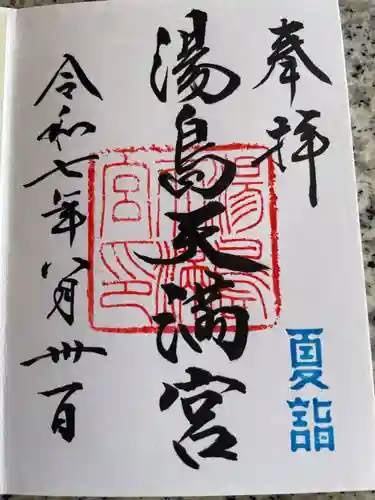 奉拝
湯島天満宮
令和七年八月卅一日
夏詣